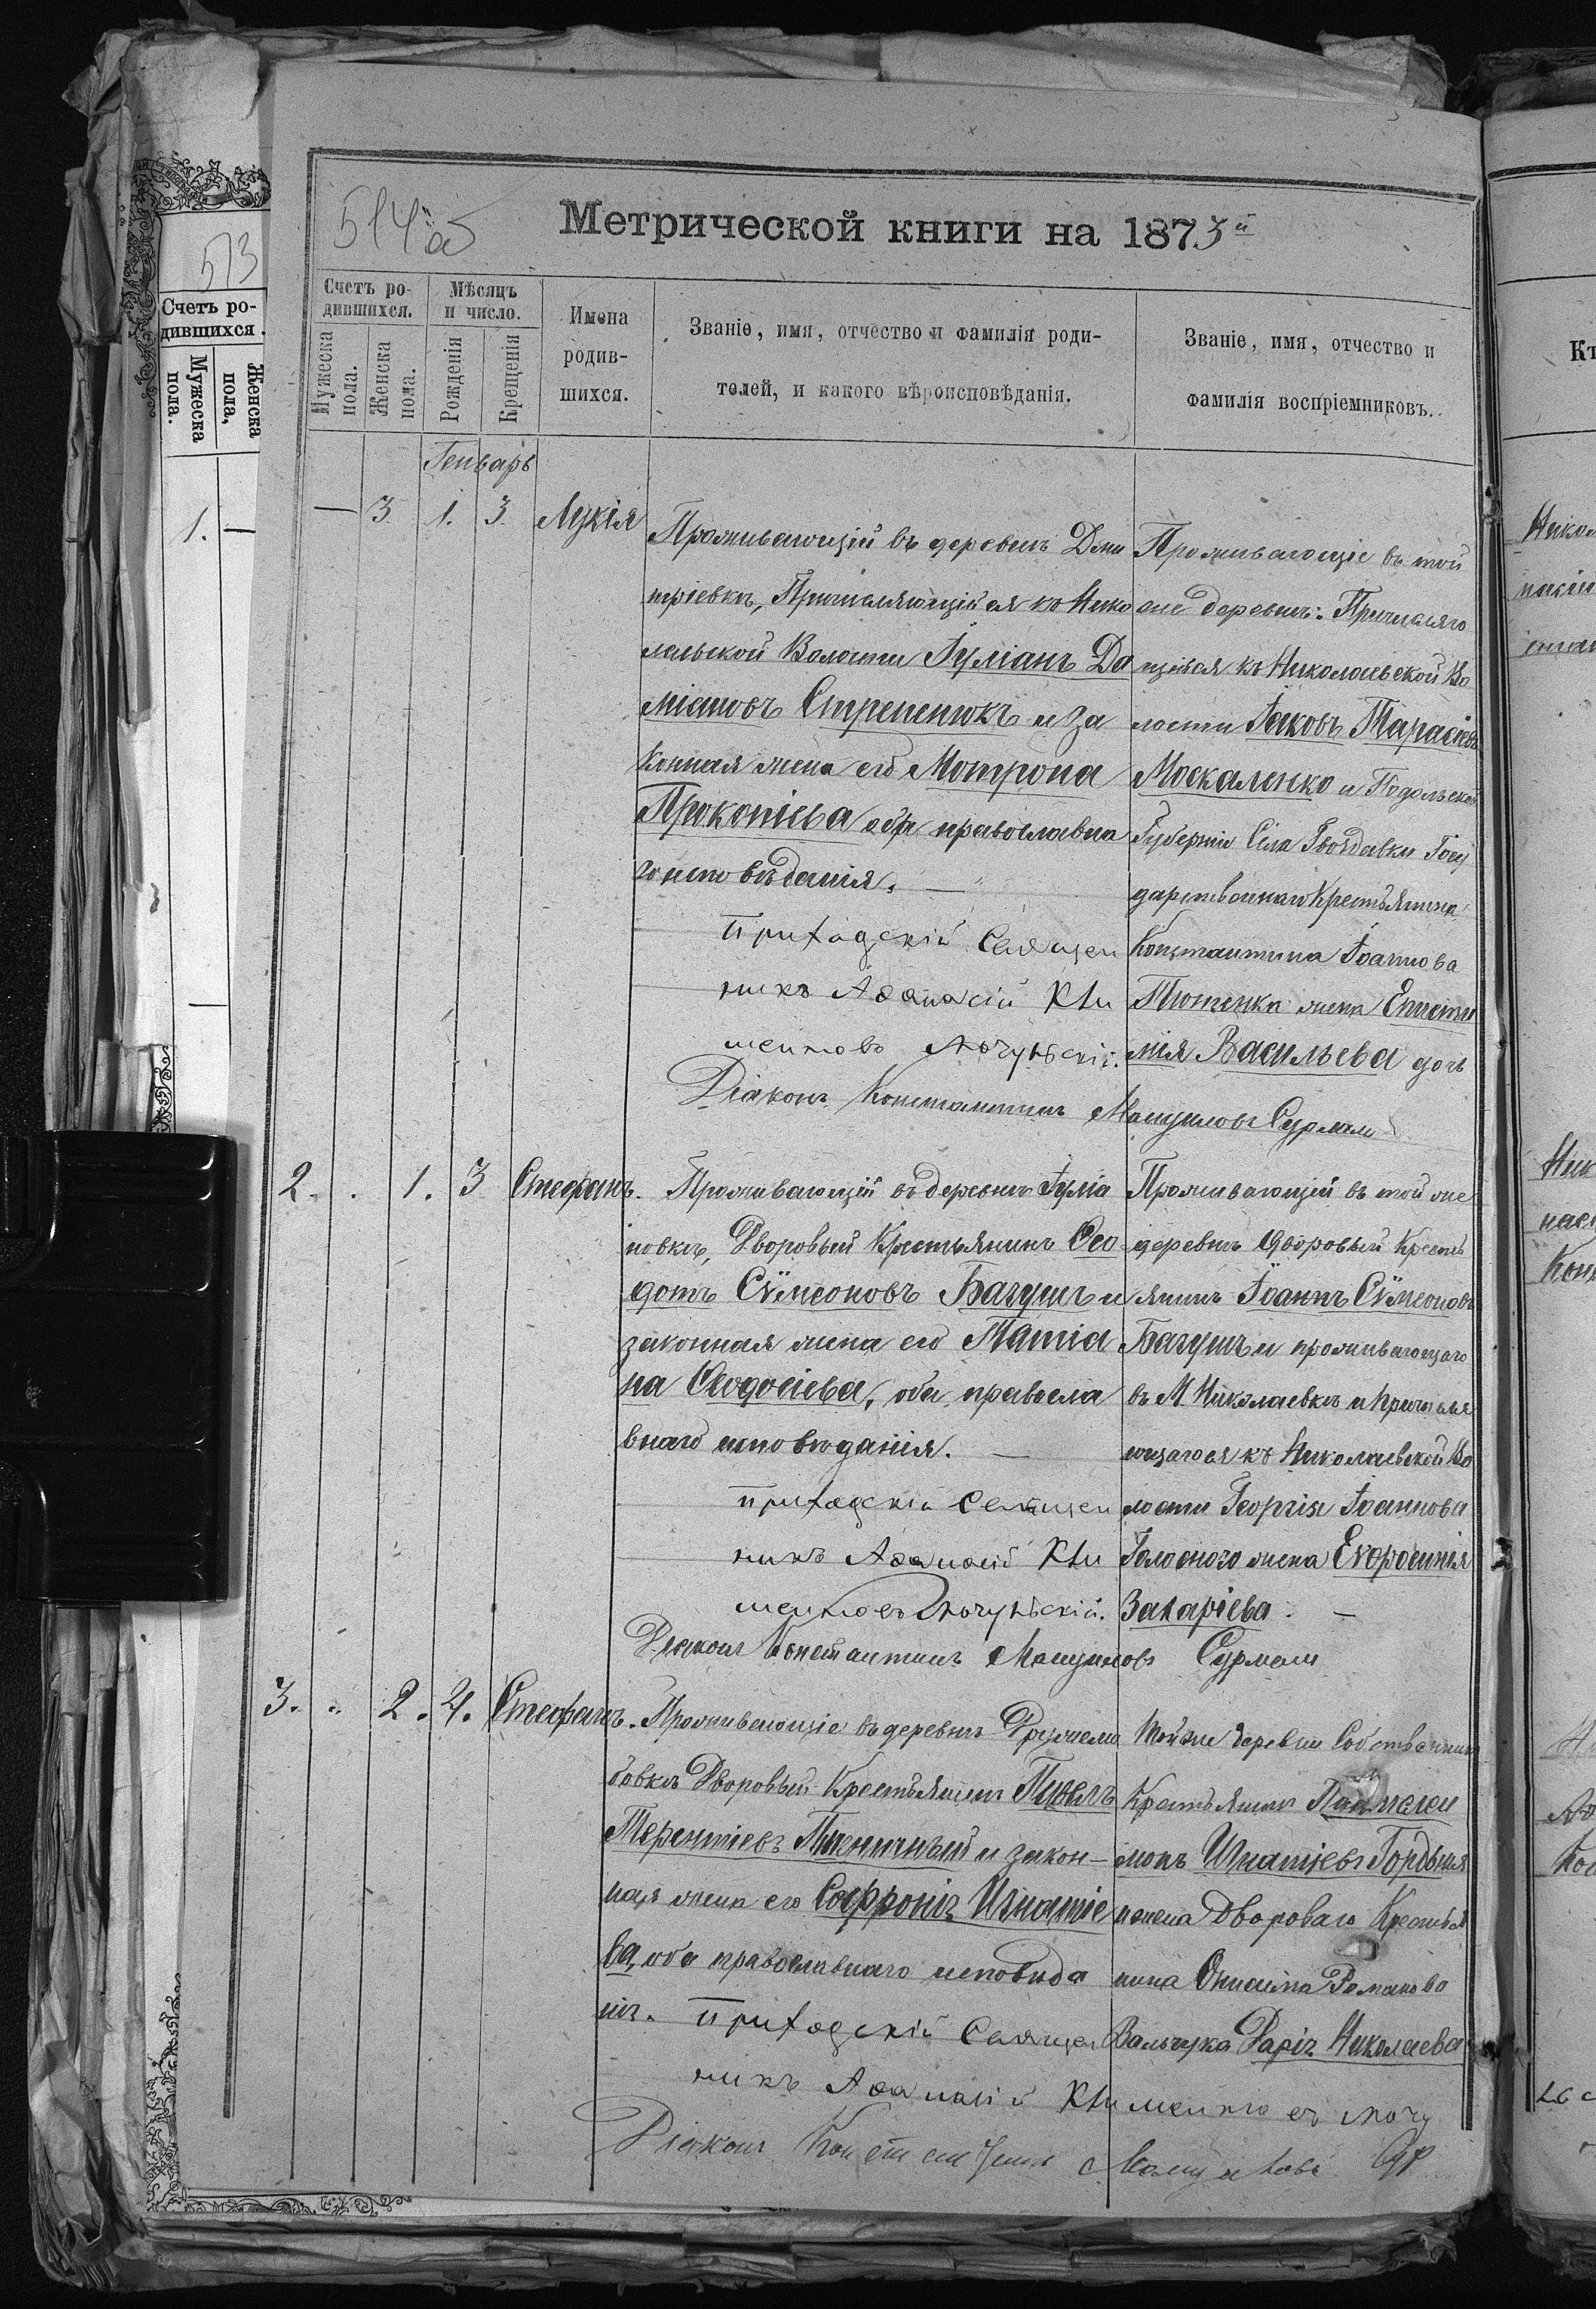 514 об
Метрической книги на 1873й
513
Счетъ ро-
дившихся.
Мужеска
пола.
Женска
пола,
1. —
Счетъ ро-
дившихся.
Мужеска
пола.
Женска
пола.
Мѣсяцъ
и число.
Рожденія
Крещенія
Имена
родив-
шихся.
Званіе, имя, отчество и фамилія роди-
телей, и какого вѣроисповѣданія.
Званіе, имя, отчество и
фамилія воспріемниковъ.
Генварь
— 3 1. 3. Лукія
Проживающій въ деревнѣ Дми
тріевкѣ, Причисляющійся къ Нико
лаевской Волости Іуліанъ Да
міановъ Стрепенюкъ и за
конная жена его Мотрона
Прокопіева оба православна
го исповѣданія. —
Приходскій Священ
никъ Аѳанасій Кли
ментовъ
Діаконъ Константинъ Сурмели
Проживающіе въ той
же деревнѣ: Причисляю
щійся къ Николаевской Во
лости Іаковъ Тарасіевъ
Москаленко и Подольской
Губерніи Села Гвоздавки Госу
дарственнаго Крестьянина
Константина Іоаннова
Тютенка жена Еписти
мія Васильева дочь
2. . 1. 3 Стефанъ.
Проживающій въ деревнѣ Іуліа
новкѣ, Дворовый Крестьянинъ Ѳео
дотъ Сѵмеоновъ Багушъ и
законная жена его Татіа
на Ѳеодосіева, оба правосла
внаго исповѣданія. —
Приходскій Священ
никъ Аѳанасій Кли
ментовъ
Діаконъ Константинъ Сурмели
Проживающій въ той же
деревнѣ Дворовый Кресть
янинъ Іоаннъ Сѵмеоновъ
Багушъ и проживающаго
въ М. Николаевкѣ и причисля
ющагося къ Николаевской Во
лости Георгія Іоаннова
Голоснаго жена Еѵфросинія
Захаріева. —
3. .. 2. 4. Стефанъ.
Проживающіе въ деревнѣ Дружелю
бовкѣ Дворовый Крестьянинъ Павелъ
Терентіевъ и закон—
ная жена его Софронія Игнатіе
ва, оба православнаго исповѣда
нія. Приходскій Священ
никъ Аѳанасій Климентовъ
Діаконъ Константинъ
Той же деревни Собственникъ
Крестьянинъ Пантелеи
монъ Игнатіевъ Гордыня
и жена Двороваго Крестья
нина Онисима Романова
Вальчука Дарія Николаева